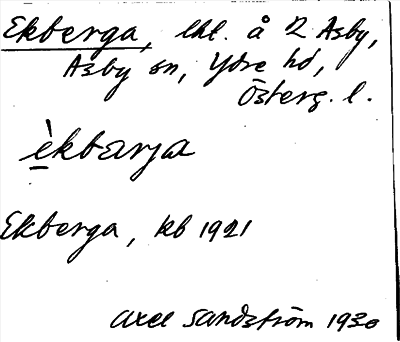 Ekberga, lht. å R Asby,
Asby sn, Ydre hd,
Österg. l.
èkbærja
Ekberga, kb 1921
Axel Sandström 1930